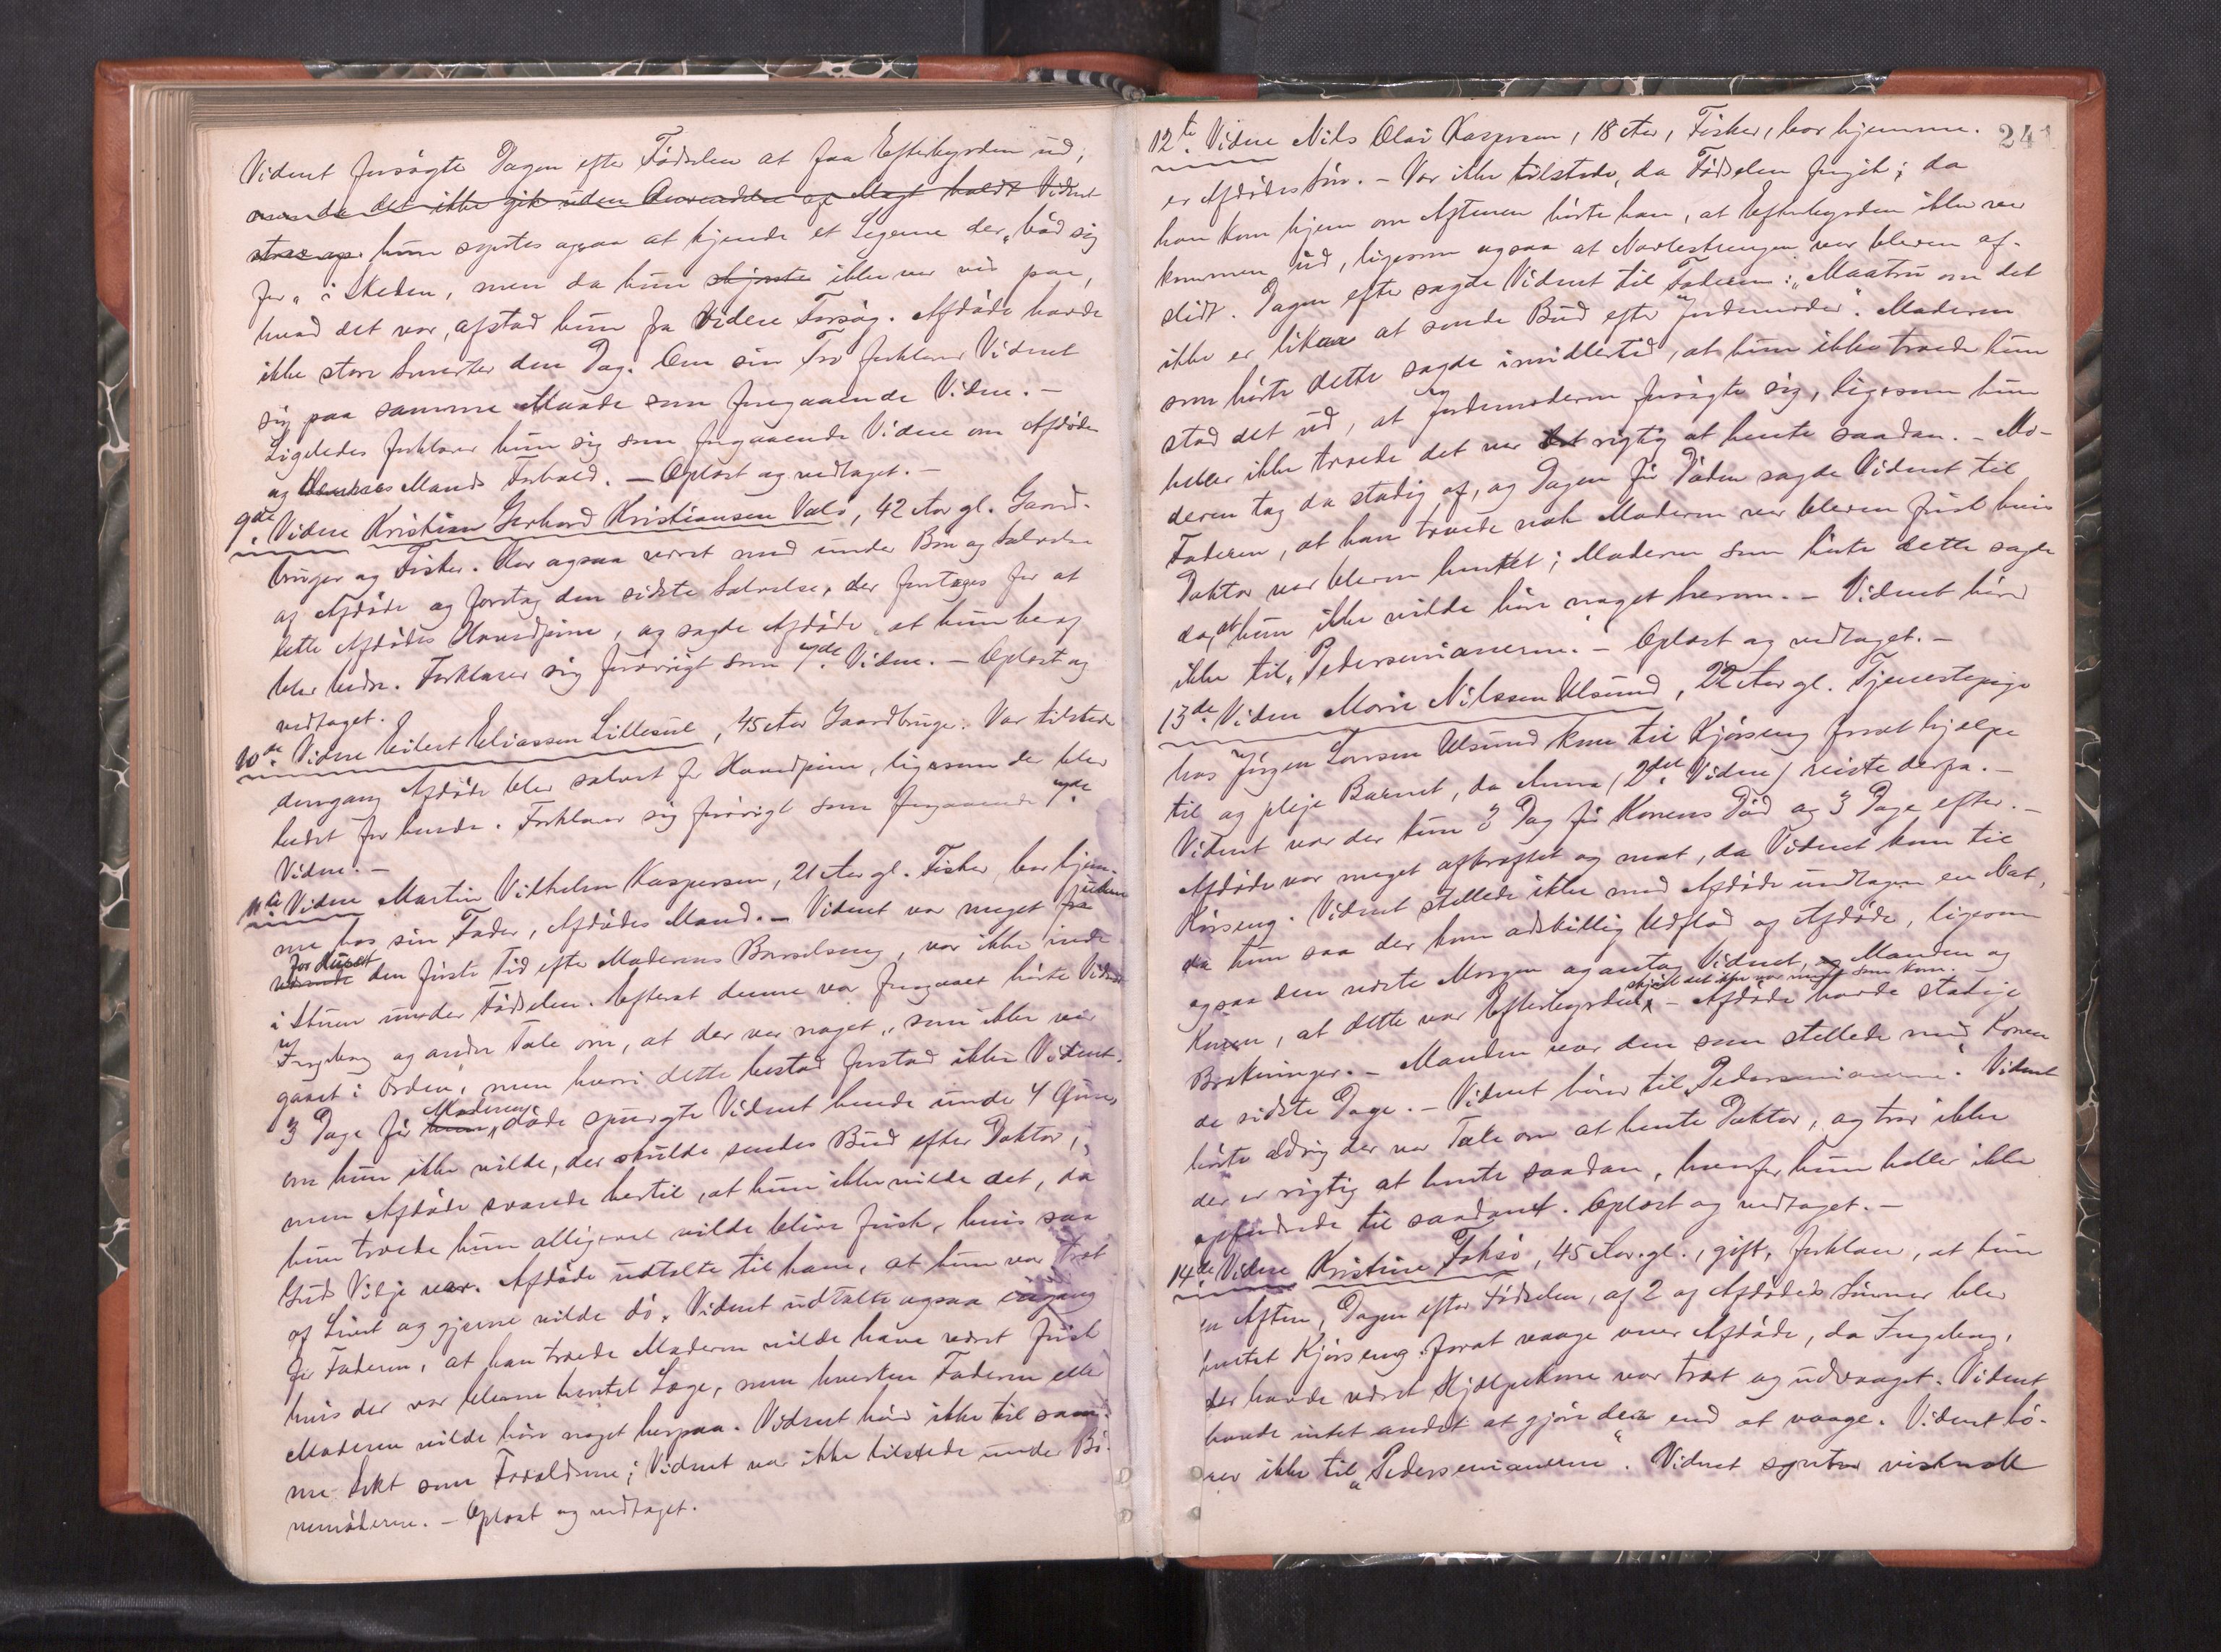 Vidnet forsøgte Dagen efter Fødselen at faa Efterbyrden ud,
men da det ikke gik uden Anvendelse af Magt holdt Vidnet
strax op. hun syntes ogsaa at kjende et Legeme der „bød sig
for“ i Skeden, men da hun skjønte ikke var vis paa,
hvad det var, afstod hun fra videre Forsøg. Afdøde havde
ikke store Smerter den Dag. Om sin Tro forklarer Vidnet
sig paa samme Maade som foregaaende Vidne. –
Ligeledes forklarer hun sig som foregaaende Vidne om Afdødes
og Mands Forhold. – Oplæst og vedtaget. –
9de Vidne Kristian Gerhard Kristiansen Valø, 42 Aar gl. Gaard-
bruger og Fisker. Har ogsaa været med under Bøn og Salvelse
af Afdøde og foretog den sidste Salvelse, der foretages for at
lette Afdødes Hovedpine, og sagde Afdøde at hun heraf
blev bedre. Forklarer sig forøvrigt som 7de Vidne. – Oplæst og
vedtaget.
10de Vidne Eilert Eliassen Lillesul, 45 Aar Gaardbruger. Var tilstede
dengang Afdøde blev salvet for Hovedpine, ligesom der blev
bedet for hende. Forklarer sig forøvrigt som foregaaende 7de
Vidne. –
11te Vidne Martin Vilhelm Kaspersen, 21 Aar gl. Fisker, bor hjem-
me hos sin Fader, Afdødes Mand. – Vidnet var meget fra uden
for Huset den første Tid efter Moderens Barselseng, var ikke inde
i Stuen under Fødselen. Efterat denne var foregaaet hørte Vidnet
Ingeborg og andre Tale om, at der var noget „som ikke var
gaaet i Orden“, men hvori dette bestod forstod ikke Vidnet.
3 Dage før hun Moderen døde spurgte Vidnet hende under 4 Øine,
om hun ikke vilde, der skulde sendes Bud efter Doktor,
men Afdøde svarede hertil, at hun ikke vilde det, da
hun troede hun alligevel vilde blive frisk, hvis saa
Guds Vilje var. Afdøde udtalte til ham, at hun var træt
af Livet og gjerne vilde dø. Vidnet udtalte ogsaa engang
for Faderen, at han troede Moderen vilde have været frisk
hvis der var bleven hentet Læge, men hverken Faderen eller
Moderen vilde høre noget herpaa. Vidnet hører ikke til sam-
me Sekt som Forældrene; Vidnet var ikke tilstede under Bø-
nemøderne. – Oplæst og vedtaget.
241
12te Vidne Nils Olai Kaspersen, 18 Aar, Fisker, bor hjemme.
er Afdødes Søn. – Var ikke tilstede, da Fødselen foregik; da
han kom hjem om Aftenen hørte han, at Efterbyrden ikke var
kommen ud, ligesom ogsaa at Navlestrengen var bleven af-
slidt. Dagen efter sagde Vidnet til Faderen: „Maatru om det
ikke er likar at sende Bud efter Jordemoder“. Moderen
som hørte dette sagde imidlertid, at hun ikke troede hun
stod det ud, at Jordemoderen forsøgte sig, ligesom hun
heller ikke troede det var rigtig at hente saadan. – Mo-
deren tog da stadig af, og Dagen før Døden sagde Vidnet til
Faderen, at han troede nok Moderen var bleven frisk hvis
Doktor var bleven hentet; Moderen som hørte dette sagde
da, at hun ikke vilde høre noget herom. – Vidnet hører
ikke til „Pedersenianerne“. – Oplæst og vedtaget. –
13de Vidne Marie Nilssen Ulsund, 22 Aar gl. Tjenestepige
hos Jørgen Larsen Ulsund kom til Kjørseng forat hjælpe
til og pleje Barnet, da Anna (2det Vidne) reiste derfra. –
Vidnet var der kun 3 Dag før Konens Død og 3 Dage efter. –
Afdøde var meget afkræftet og mat, da Vidnet kom til
Kørseng. Vidnet stellede ikke med Afdøde undtagen en Nat,
da hun saa der kom adskillig Udflod af Afdøde, ligesom
ogsaa den næste Morgen og antog Vidnet, og Manden og
Konen, at dette var Efterbyrden, skjønt det ikke var meget som kom. – Afdøde havde stadige
Brækninger. – Manden var den som stellede med Konen
de sidste Dage. – Vidnet hører til „Pedersenianerne“. Vidnet
hørte aldrig der var Tale om at hente Doktor, og tror ikke
der er rigtig at hente saadan, hvorfor hun heller ikke
opfordrede til saadant. Oplæst og vedtaget. –
14de Vidne Kristine Foksø, 45 Aar gl., gift, forklarer, at hun
en Aften, Dagen efter Fødselen, af 2 af Afdødes Sønner blev
hentet Kjørseng forat vaage over Afdøde, da Ingeborg,
der havde været Hjælpekone var træt og udvaaget. Vidnet
havde intet andet at gjøre der end at vaage. Vidnet hø-
rer ikke til „Pedersenianerne“. Vidnet syntes vistnok